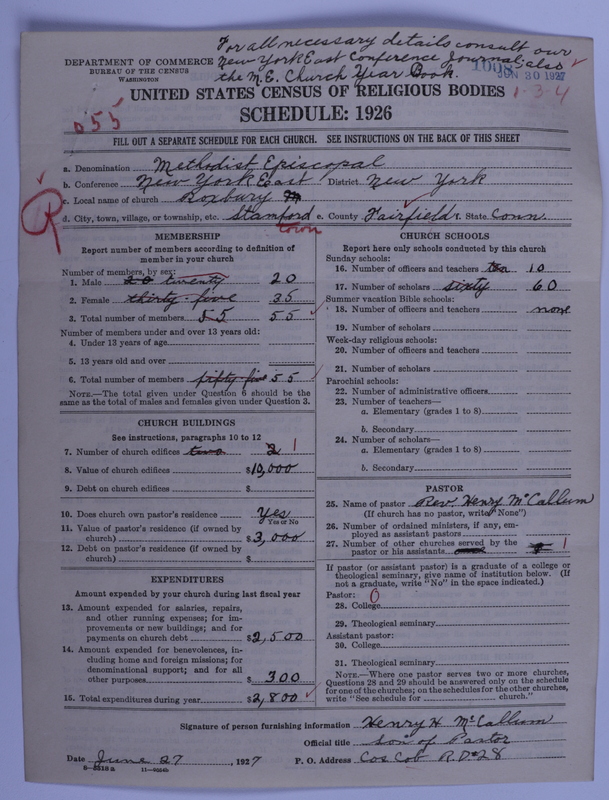 For all necessary details consult our
New York East Conference Journal; also
the M.E. Church Year Book.
DEPARTMENT OF COMMERCE
BUREAU OF THE CENSUS
WASHINGTON
JUN 30 1927
1-3-4
UNITED STATES CENSUS OF RELIGIOUS BODIES
SCHEDULE: 1926
055
FILL OUT A SEPARATE SCHEDULE FOR EACH CHURCH. SEE INSTRUCTIONS ON THE BACK OF THIS SHEET
a. Denomination Methodist Episcopal
b. Conference New York East District New York
c. Local name of church Roxbury
d. City, town, village, or township, etc. Stamford e. County Fairfield f. State Conn.
town
MEMBERSHIP
Report number of members according to definition of
member in your church
Number of members, by sex:
1. Male 20 twenty 20
2. Female thirty-five 35
3. Total number of members 55 55
Number of members under and over 13 years old:
4. Under 13 years of age
5. 13 years old and over
6. Total number of members fifty-five 55
NOTE.—The total given under Question 6 should be the
same as the total of males and females given under Question 3.
CHURCH BUILDINGS
See instructions, paragraphs 10 to 12
7. Number of church edifices two 2 1
8. Value of church edifices $10,000
9. Debt on church edifices $
10. Does church own pastor's residence Yes
Yes or No
11. Value of pastor's residence (if owned by
church) $3,000
12. Debt on pastor's residence (if owned by
church) $
EXPENDITURES
Amount expended by your church during last fiscal year
13. Amount expended for salaries, repairs,
and other running expenses; for im-
provements or new buildings; and for
payments on church debt $2,500
14. Amount expended for benevolences, in-
cluding home and foreign missions; for
denominational support; and for all
other purposes $ 300
15. Total expenditures during year $2,800
CHURCH SCHOOLS
Report here only schools conducted by this church
Sunday schools:
16. Number of officers and teachers ten 10
17. Number of scholars sixty 60
Summer vacation Bible schools:
18. Number of officers and teachers none
19. Number of scholars
Week-day religious schools:
20. Number of officers and teachers
21. Number of scholars
Parochial schools:
22. Number of administrative officers
23. Number of teachers—
a. Elementary (grades 1 to 8)
b. Secondary
24. Number of scholars—
a. Elementary (grades 1 to 8)
b. Secondary
PASTOR
25. Name of pastor Rev. Henry McCallum
(If church has no pastor, write "None")
26. Number of ordained ministers, if any, em-
ployed as assistant pastors
27. Number of other churches served by the
pastor or his assistants 1
If pastor (or assistant pastor) is a graduate of a college or
theological seminary, give name of institution below. (If
not a graduate, write "No" in the space indicated.)
Pastor: 0
28. College
29. Theological seminary
Assistant pastor:
30. College
31. Theological seminary
NOTE.—Where one pastor serves two or more churches,
Questions 28 and 29 should be answered only on the schedule
for one of the churches; on the schedules for the other churches,
write "See schedule for church."
Signature of person furnishing information Henry H McCallum
Official title Son of Pastor
Date June 27, 1927 P. O. Address Cos Cob R.D.#28
8—5518a 11—9024b